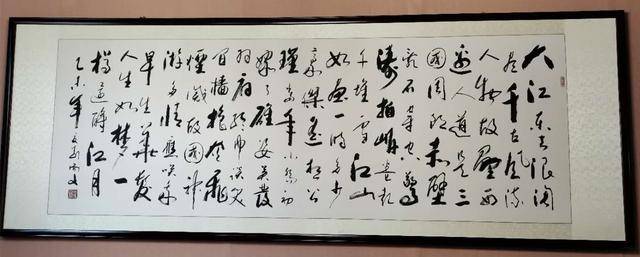 大江东去浪淘
尽千古风流
人物故垒西
邊人道是三
國周郎赤壁
乱石穿空惊
涛拍岸卷起
千堆雪江山
如画一时多少
豪傑遥想公
瑾当年小乔初
嫁了雄姿英發
羽扇纶巾谈笑
间樯橹灰飛
煙滅故國神
游多情應笑我
早生華髮
人生如梦一
樽還酹江月
乙未年